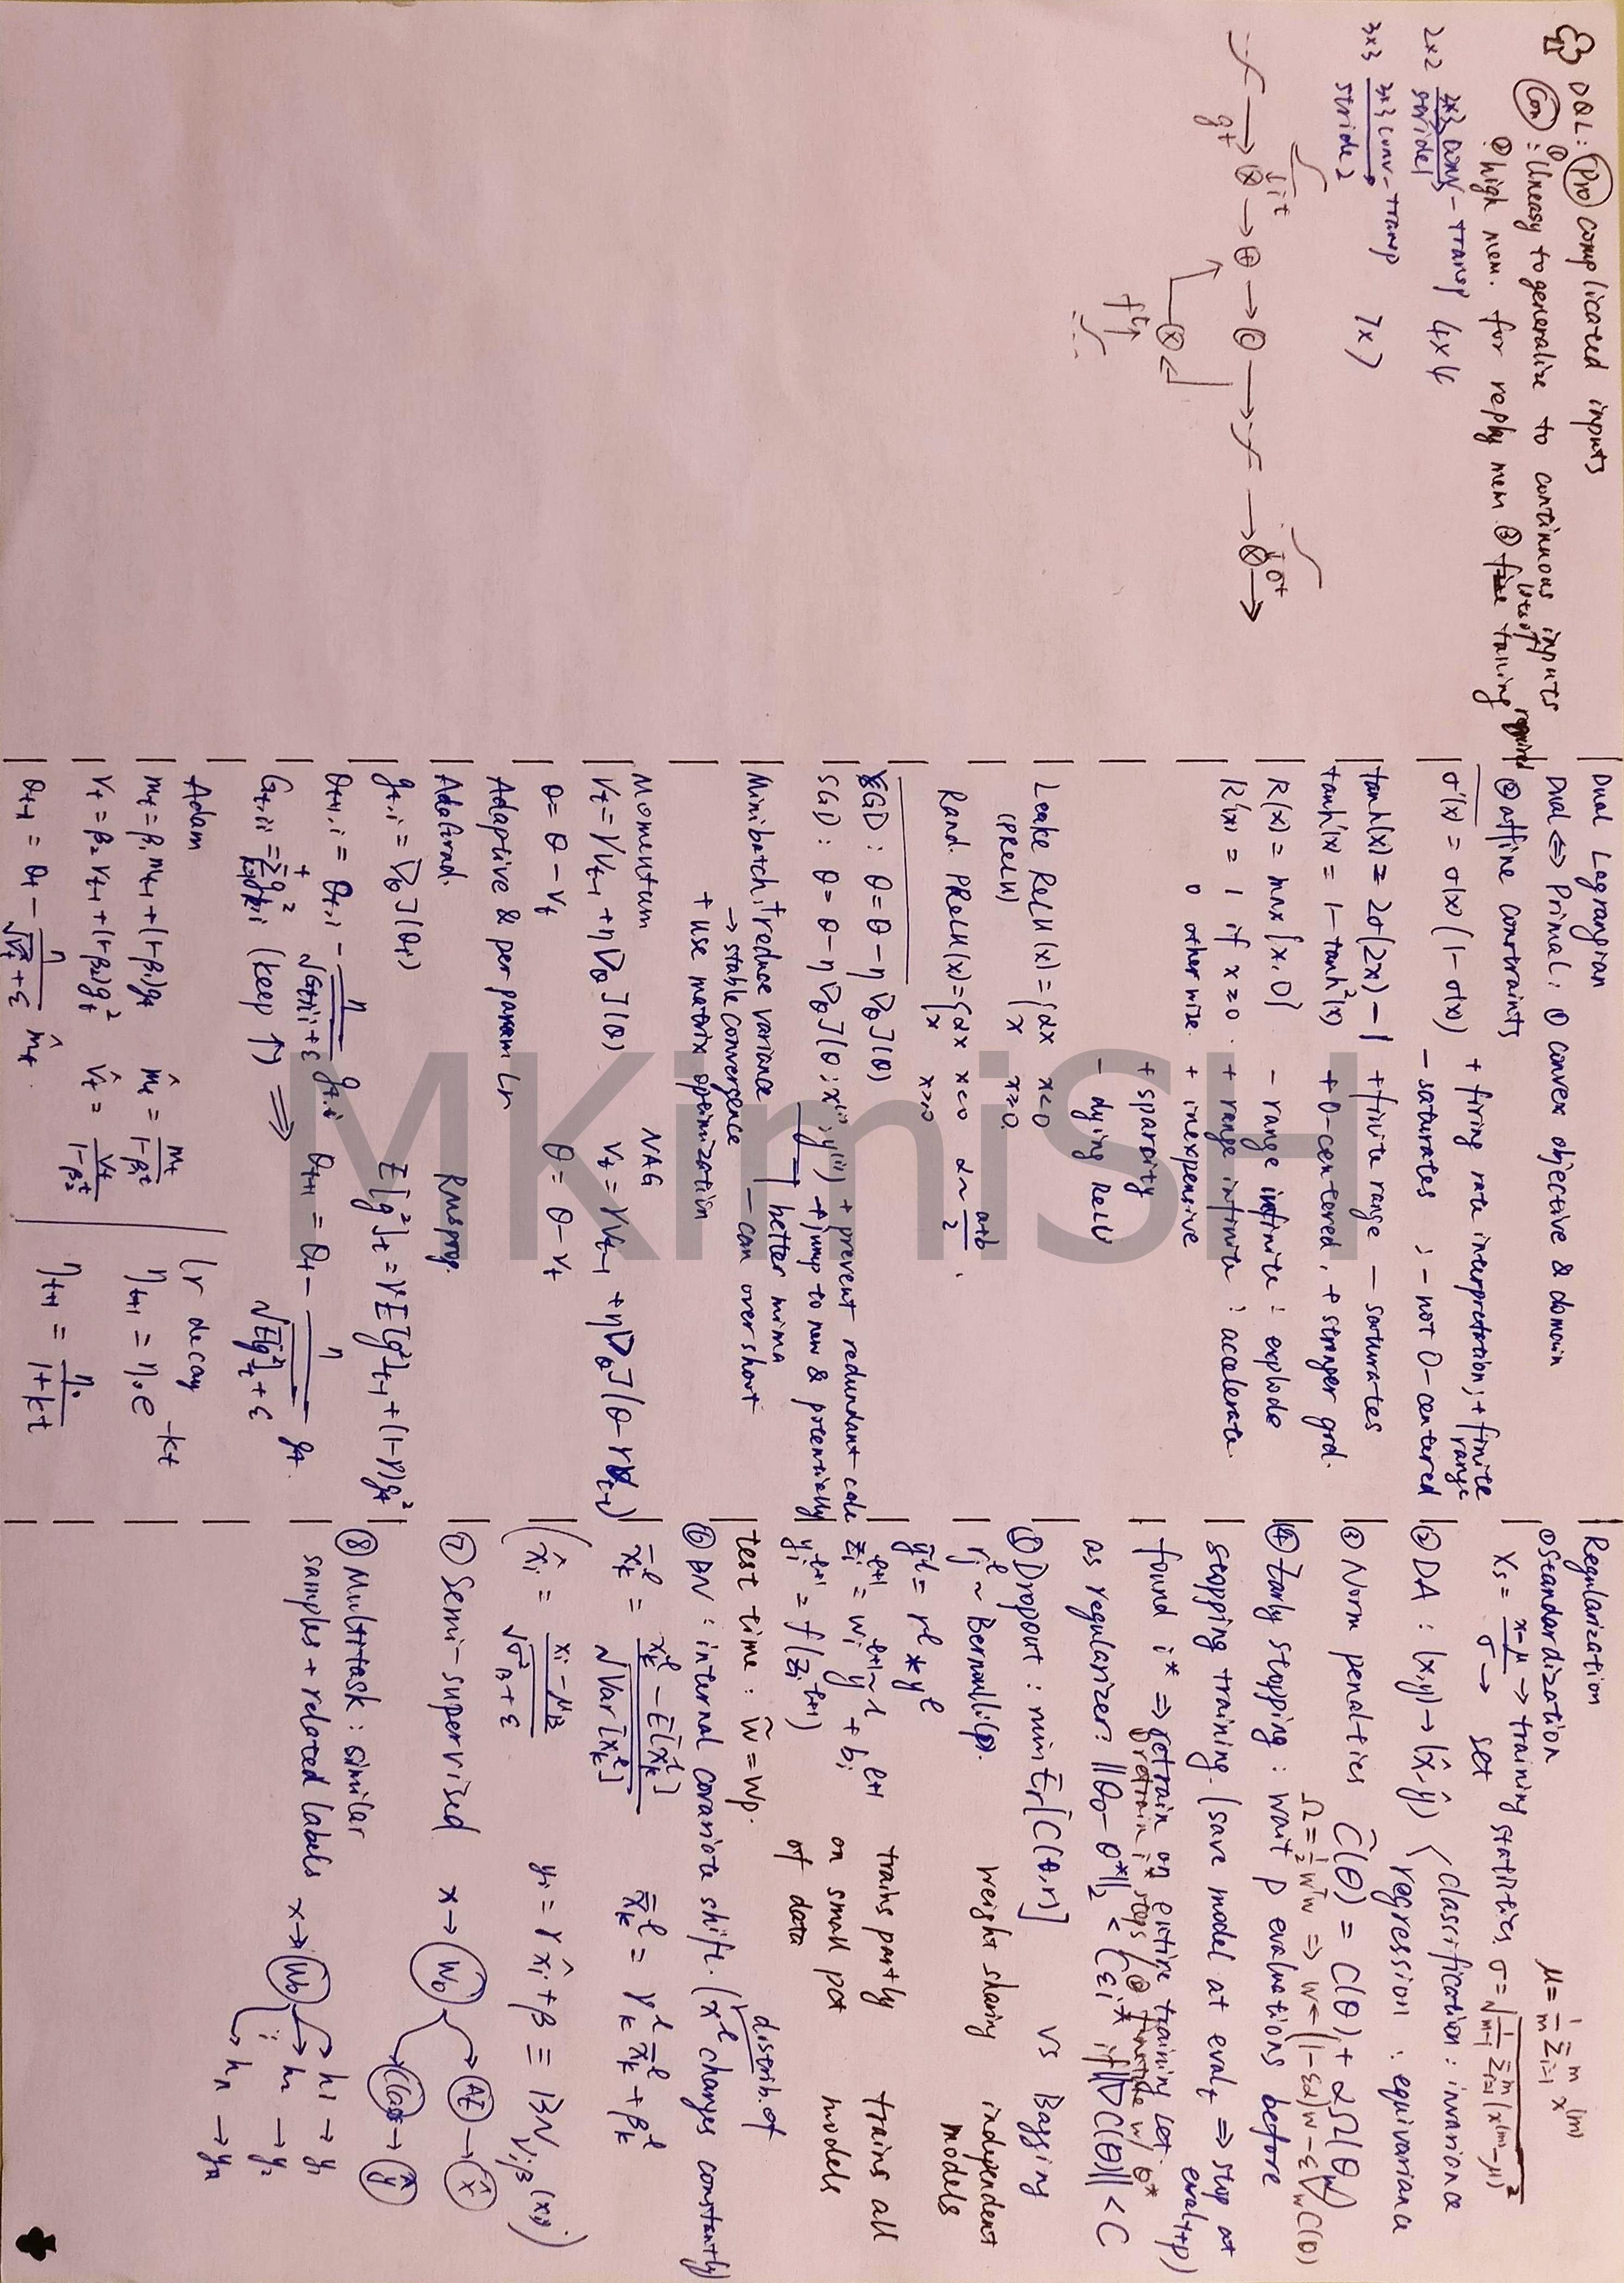 DQL: Pro complicated inputs
Con: ① Uneasy to generalize to continuous inputs
② high mem. for reply mem ③ lots of training required
2x2 3x3 conv-transp 4x4
stride 1
3x3 3x3 conv-transp 7x7
stride 2
gt
it
ft
ot
Dual Lagrangian
Dual ⇔ Primal: ① convex objective & domain
② affine constraints
σ'(x) = σ(x)(1-σ(x)) + firing rate interpretation; + finite range
- saturates ; - not 0-centered
tanh(x) = 2σ(2x) - 1 + finite range - saturates
tanh'(x) = 1 - tanh²(x) + 0-centered, + stronger grd.
R(x) = max{x,0} - range infinite: explode
R'(x) = 1 if x≥0 + range infinite: acelerate
0 otherwise. + inexpensive
+ sparsity
- dying ReLU
Leake ReLU(x) = {αx x<0
(PReLU) x x≥0.
Rand. PReLU(x) = {αx x<0 α~ a+b/2.
x x≥0
GD: θ = θ - η∇θJ(θ)
SGD: θ = θ - η∇θJ(θ; x⁽ⁱ⁾; y⁽ⁱ⁾) + prevent redundant calc
+ jump to new & potentially
better mima
- can overshoot
Minibatch: + reduce variance
→ stable convergence
+ use matrix opimization
Momentum NAG
Vt = γVt-1 + η∇θJ(θ) Vt = γVt-1 + η∇θJ(θ - γVt-1)
θ = θ - Vt θ = θ - Vt
Adaptive & per param Lr
AdaGrad. RMSprop.
gt,i = ∇θJ(θt) E[g²]t = γE[g²]t-1 + (1-γ)gt²
θt+1,i = θt,i - η/√Gt,ii+ε gt,i θt+1 = θt - η/√E[g²]t+ε gt.
Gt,ii = Σ g²k,i (keep ↑) ⇒
Adam Lr decay
mt = β₁mt-1 + (1-β₁)gt m̂t = mt/1-β₁ᵗ ηt+1 = η₀e^-kt
Vt = β₂Vt-1 + (1-β₂)gt² V̂t = Vt/1-β₂ᵗ
θt+1 = θt - η/√V̂t+ε m̂t. ηt+1 = η₀/1+kt
Regularization
① Standardization μ = 1/m Σᵢ₌₁ᵐ x⁽ᵐ⁾
Xs = x-μ/σ → training statistics, σ = √1/m-1 Σᵢ₌₁ᵐ (x⁽ᵐ⁾-μ)²
→ set
② DA: (x,y) → (x̂,ŷ) < classification: invariance
regression: equivariance
③ Norm penalties C̃(θ) = C(θ) + αΩ(θw)
Ω = ½wᵀw ⇒ w ← (1-εα)w - ε∇wC(θ)
④ Early stopping: wait p evaluations before
stopping training. (save model at evalt ⇒ stop at evalt+p)
found i* ⇒ retrain on entire training set.
as regularizer: ||θ₀ - θ*||₂ < Cεi* if ||∇C(θ)|| < C
⑤ Dropout: min Er[C(θ,r)] vs Bagging
rjˡ ~ Bernoulli(p). weight sharing independent models
ỹˡ = rˡ * yˡ
zᵢˡ⁺¹ = wᵢˡ⁺¹ỹˡ + bᵢˡ⁺¹ trains partly trains all
yᵢˡ⁺¹ = f(zᵢˡ⁺¹) on small pat models
of data
test time: w̃ = wp.
⑥ BN: internal covariate shift. (distrib. of xˡ changes constantly)
x̄kˡ = xkˡ - E[xkˡ]/√Var[xkˡ] x̿kˡ = γkˡx̄kˡ + βkˡ
(x̂ᵢ = xᵢ-μB/√σ²B+ε yᵢ = γx̂ᵢ + β ≡ BNγ,β(xᵢ))
⑦ Semi-supervised x → W₀ → AE → x̂
Class → ŷ
⑧ Multitask: similar
samples + related labels x → W₀ → h₁ → y₁
h₂ → y₂
hn → yn
MKimiSH